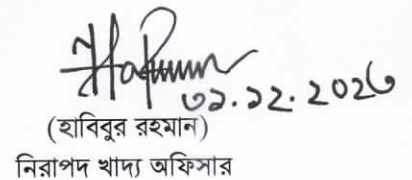 ৩১.১২.২০২৩
(হাবিবুর রহমান)
নিরাপদ খাদ্য অফিসার